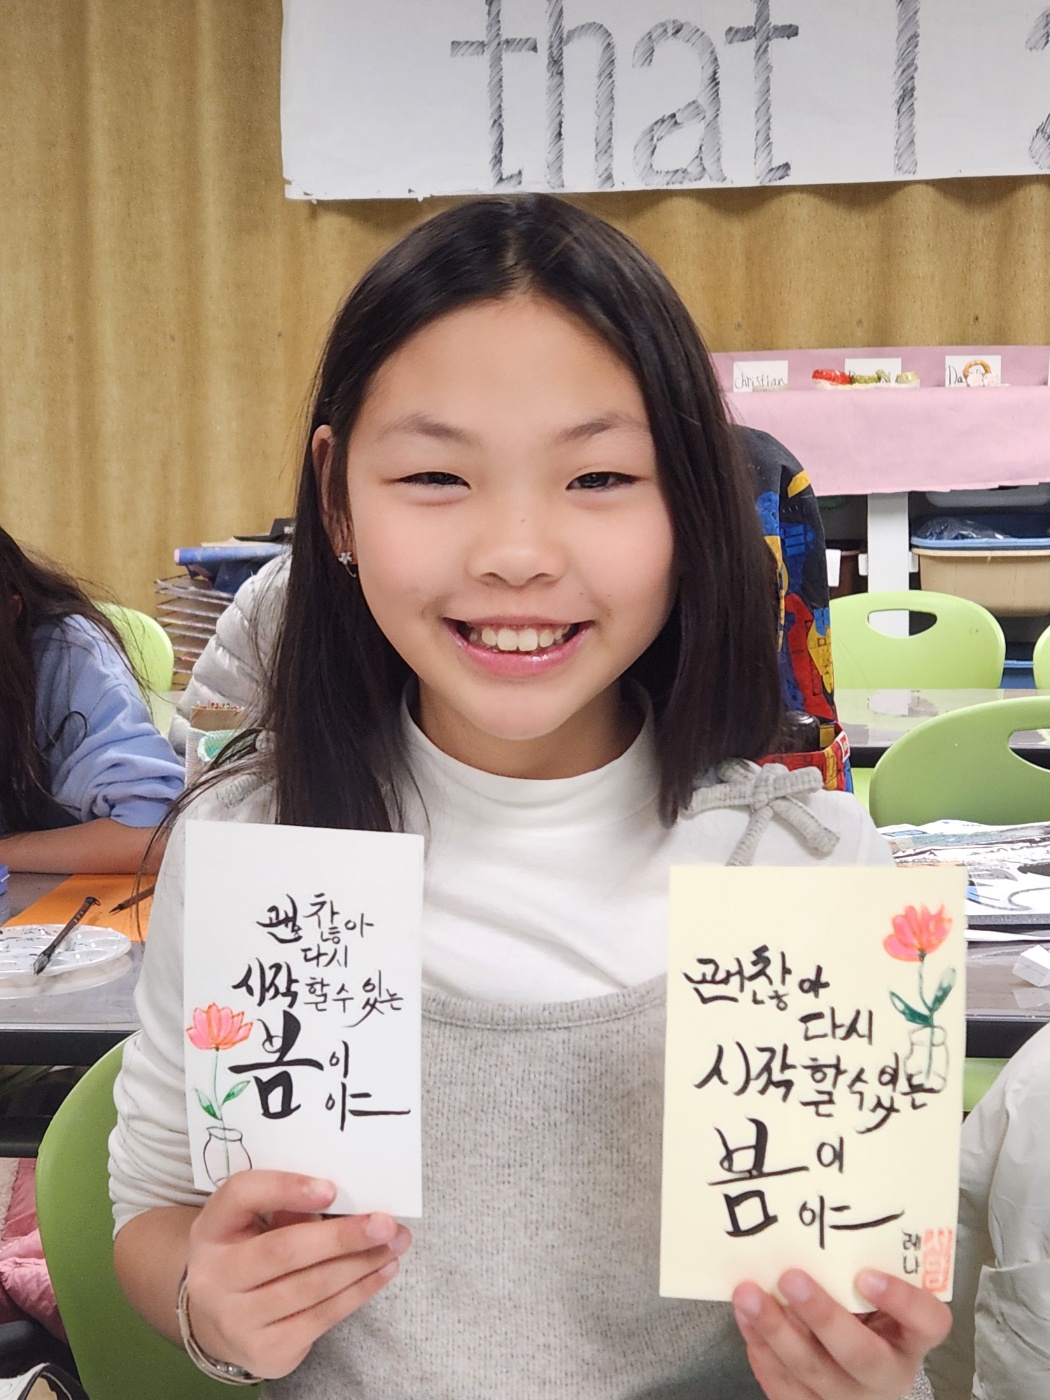 that I a
Christian
Da
괜찮아
다시
시작할수있는
봄이
야
괜찮아
다시
시작할수있는
봄이
야
레나